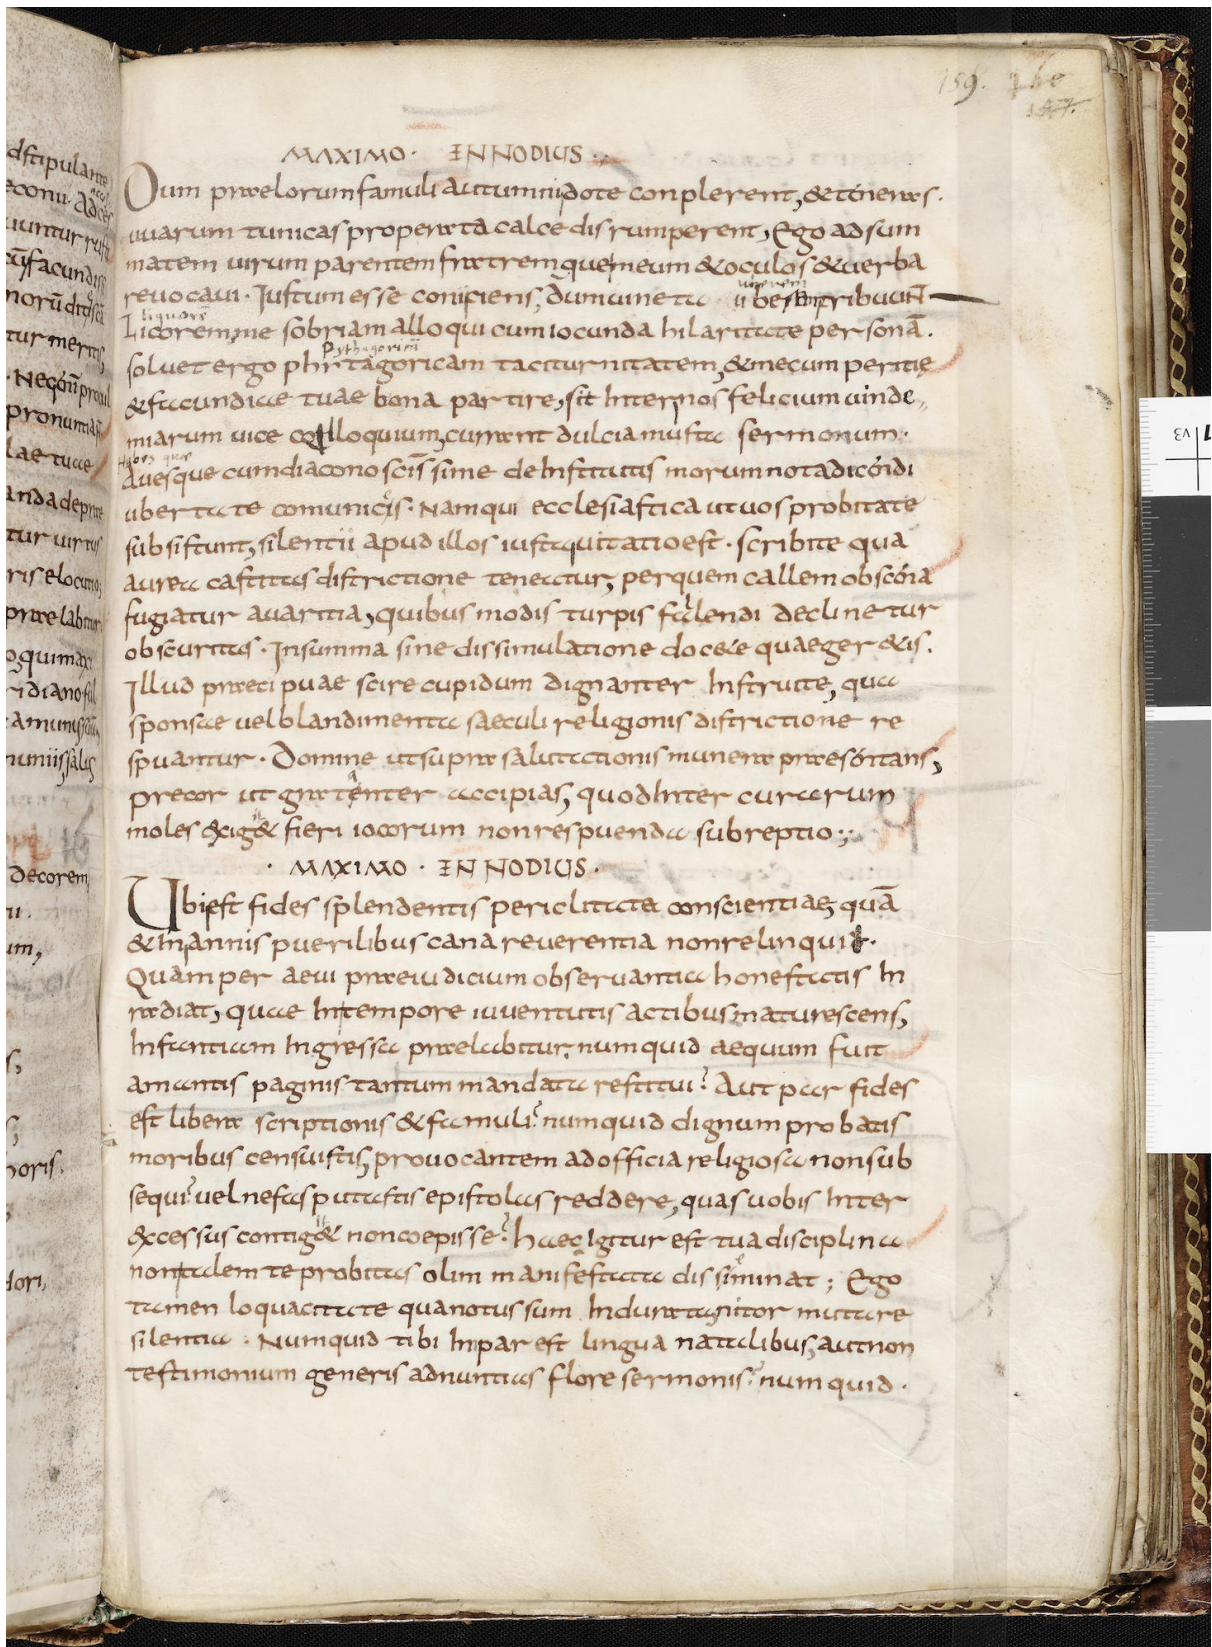 159.
MAXIMO · ENNODIUS ·
Dum praelorum famuli autumni dote conplerent, & teneras ·
uuarum tunicas properata calce disrumperent, Ego ad sum
matem uirum parentem fratremque meum & oculos & uerba
reuocaui · Iustum esse coniciens, dum uineta ube tribuunt
uuerem
liquorē
Licorem, me sobriam alloqui cum iocunda hilaritate personā .
Pythagoricā
soluet ergo phitagoricam taciturnitatem, & mecum peritię
& facundiae tuae bona partire, sit inter nos felicium uinde„
miarum uice colloquium, currant dulcia musta sermonum ·
Habes que
Auesque cum diacono scīssime de institutis morum nota dicendi
ubertate comunicis · Nam qui ecclesiastica ut uos probitate
subsistunt, silentii apud illos iusta quitatio est · scribite qua
aurea castitas districtione teneatur, per quem callem obscena
fugiatur auaritia, quibus modis turpis fallendi declinetur
obscuritas · In summa sine dissimulatione docere quae geretis .
Illud praecipuae scire cupidum dignanter Instruite, qua
sponsae uel blandimenta saeculi religionis districtione re
spuantur · Domine ut supra salutationis munera praesentans,
precor ut gratenter accipias, quod Inter curarum
moles exig& fieri iocorum non respuenda subreptio ;
· MAXIMO · ENNODIUS ·
Ubi est fides splendentis periclitata conscientiae, quā
& In annis puerilibus cana reuerentia non relinquit ·
Quam per aeui praeiudicium obseruantia honestatis In
radiat, quae In tempore iuuentutis actibus maturescens,
Infantiam Ingressa praelabitur, numquid aequum fuit
amantis paginis tantum mandata restitui? Aut par fides
est libera scriptionis & famuli? numquid dignum probatis
moribus censuistis, prouocantem ad officia religiosa non sub
sequi? uel nefas putastis epistolas reddere, quas uobis Inter
excessus contig& non coepisse? haec Igitur est tua disciplina
non talem te probitas olim manifestata disseminat ; Ego
tamen loquacitate qua notus sum Indurata nitor mutare
silentia · Numquid tibi Inpar est lingua natalibus, aut non
testimonium generis adnuntias flore sermonis? numquid ·